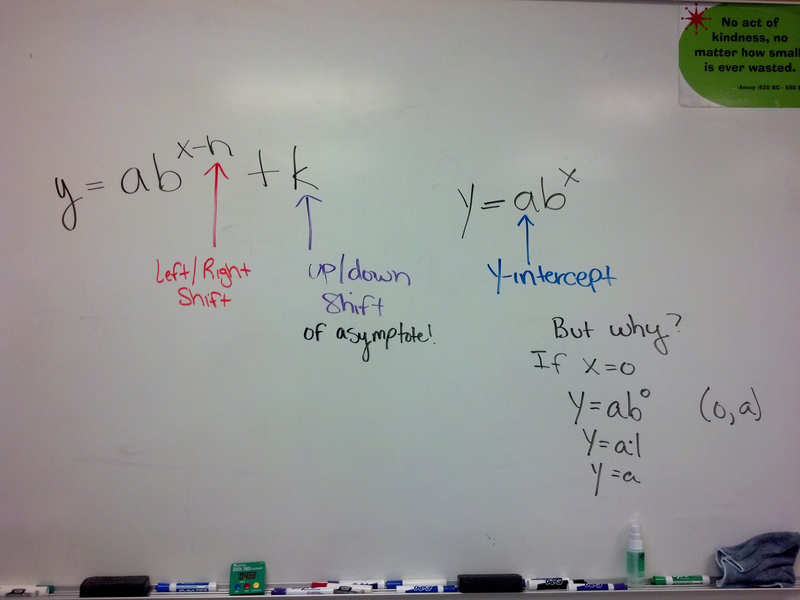 No act of
kindness, no
matter how small
is ever wasted.
y = ab^(x-h) + k
Left/Right
Shift
up/down
Shift
of asymptote!
y = ab^x
Y-intercept
But why?
If x=0
y=ab^0 (0,a)
y=a·1
y=a